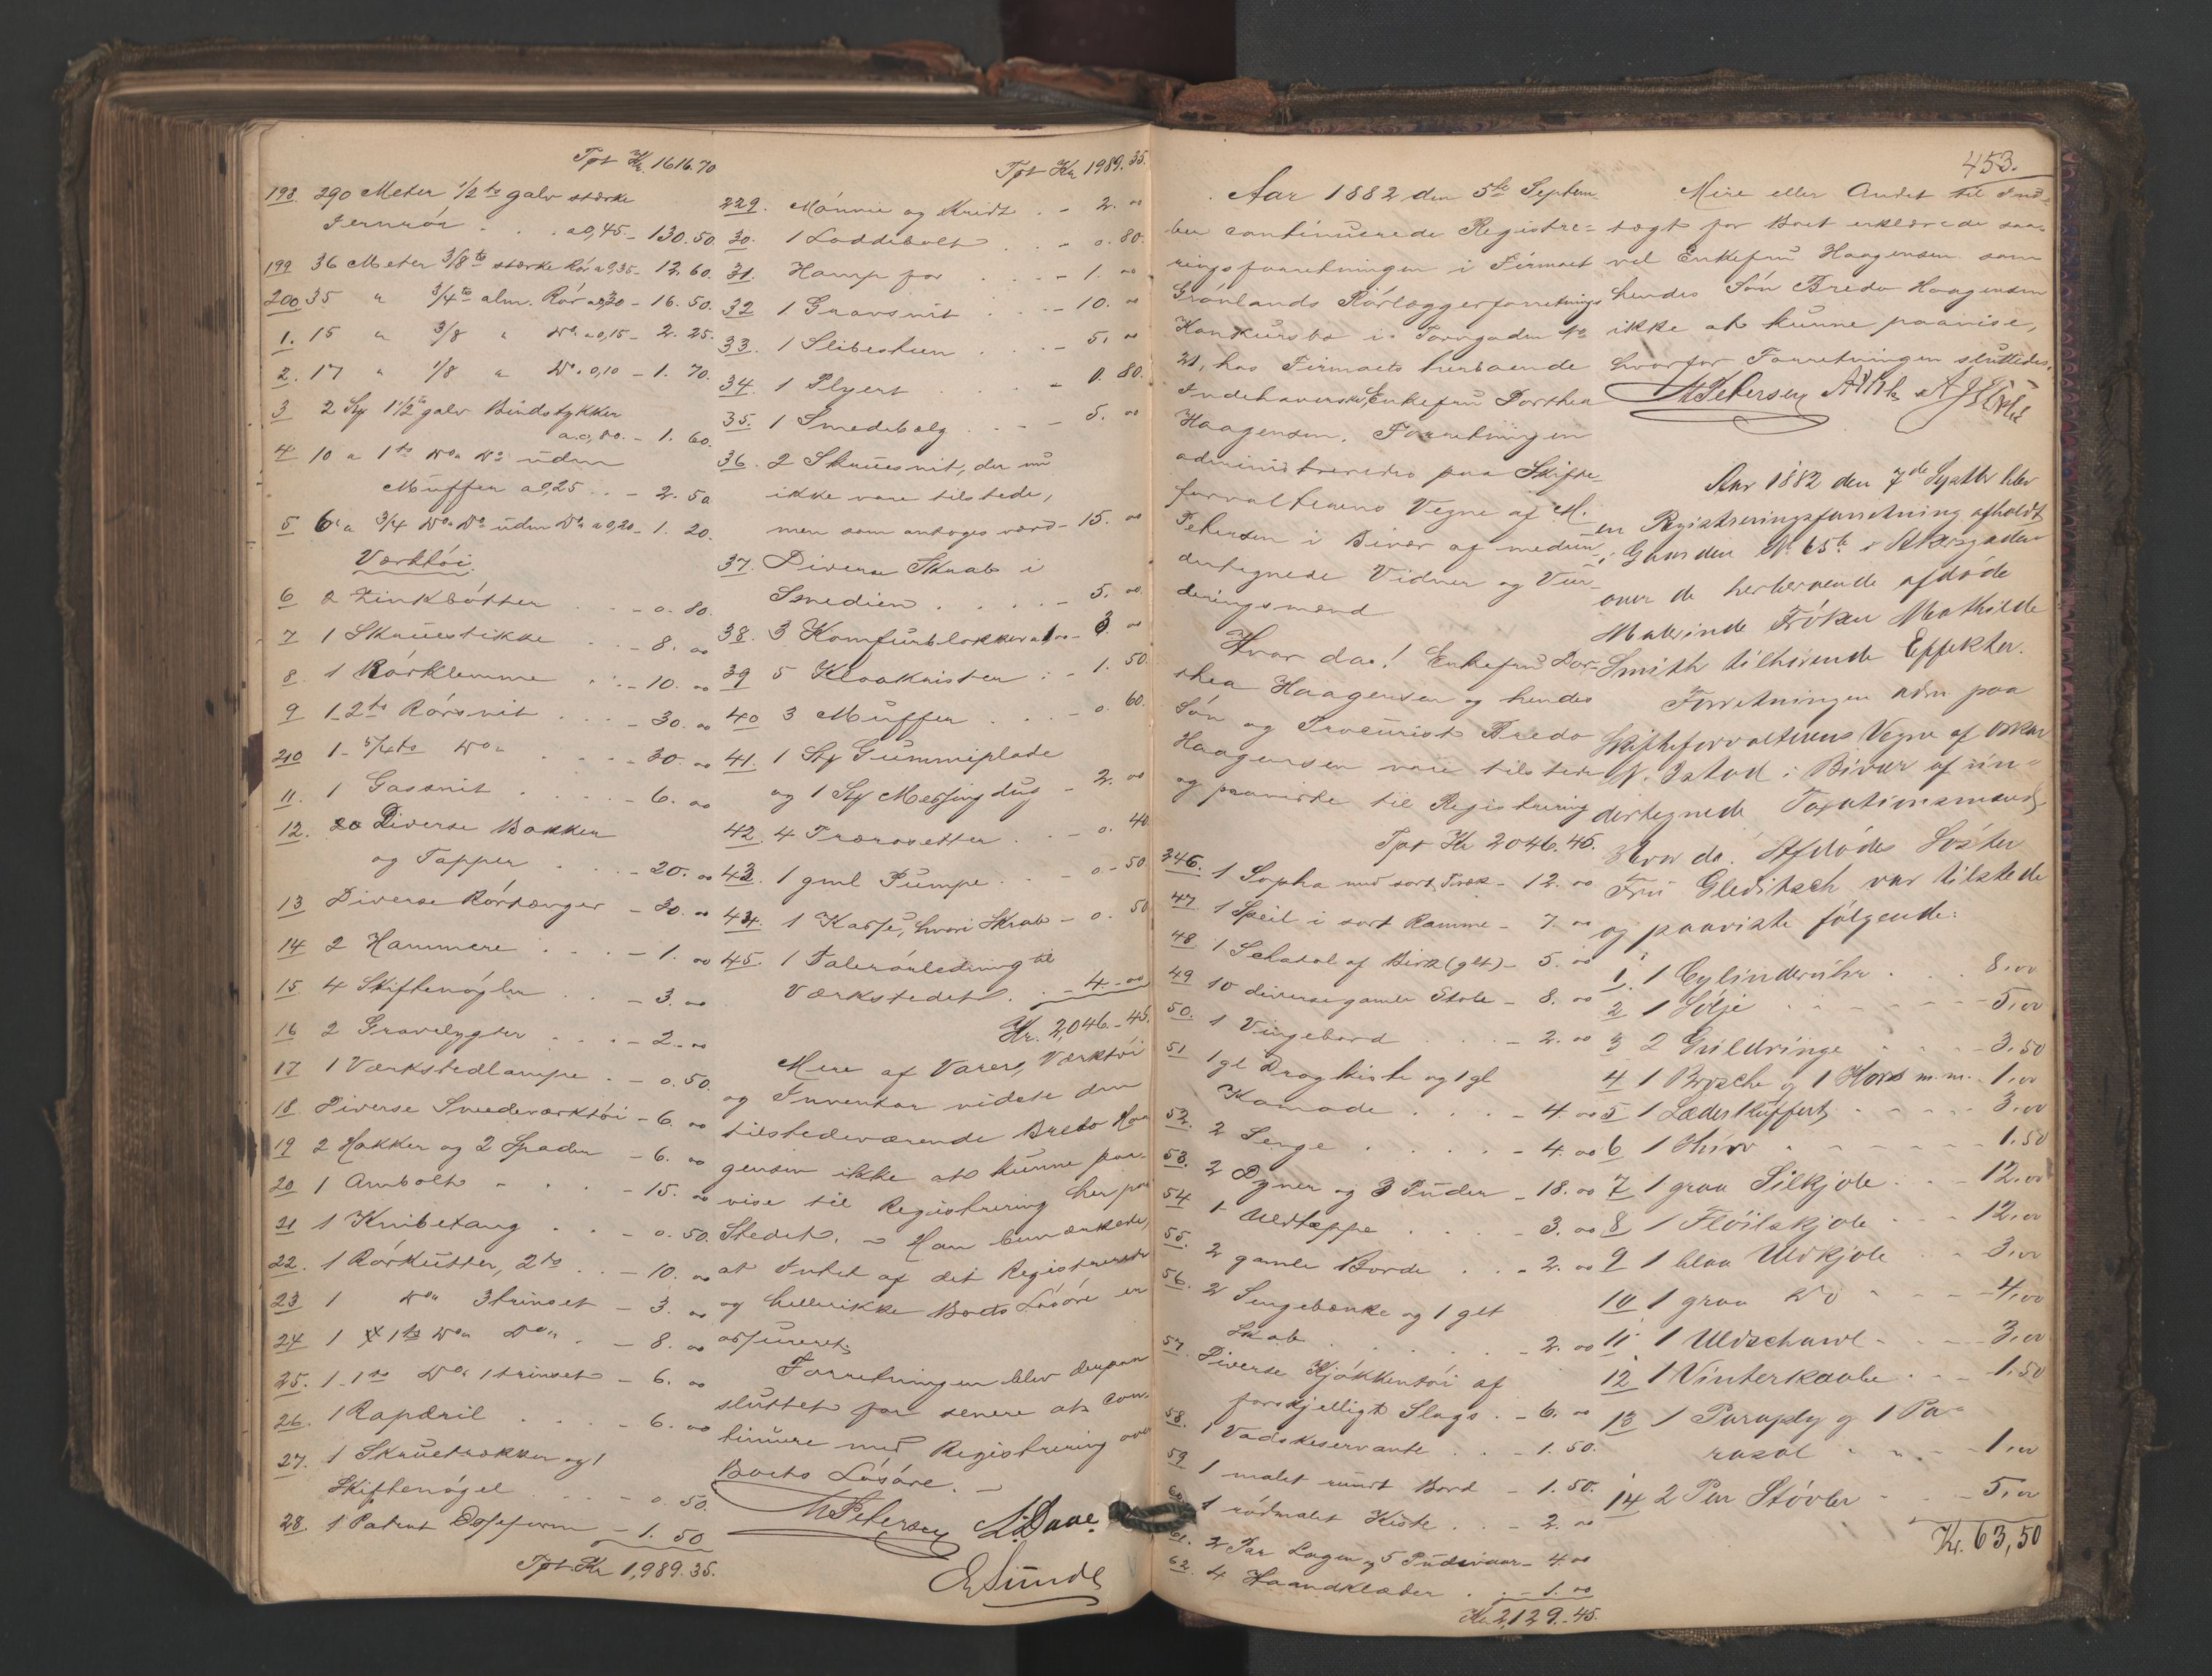 Tpt Kr. 1616.70
198. 290 Meter 1/2 ts galv stærke
Jernrör . . . a 0,45 - 130.50.
199 36 Meter 3/8 ts stærke Rör a 0,35 - 12.60.
200 35 " 3/4 ts alm. Rör a 0,30 - 16.50.
1. 15 " 3/8 " Do a 0,15 - 2.25.
2. 17 " 1/8 " Do a 0,10 - 1.70.
3 2 Stk 1 1/2 ts galv Bindstykker
a. 0,80. - 1.60.
4 10 " 1 ts Do Do uden
Muffer a 0,25 . . - 2.50
5 6 " 3/4 Do Do uden Do a 0,20 - 1.20.
Værktöi.
6 2 Zinkbötter . . - 0.80.
7 1 Skruestikke . . - 8.00
8. 1 Rörklemme . . - 10.00
9 1 - 2 ts Rörsnit . . . - 30.00
210 1 - 5/4 ts Do . . . - 30.00
11. 1 Gassnit . . . . - 6.00
12. Diverse Bakker
og Tapper . . . - 20.00
13 Diverse Rörtænger - 30.00
14 2 Hammere . . . - 1.00
15. 4 Skiftenögler . . - 3.00
16 2 Gravelygter . . . - 2.00
17 1 Værkstedlampe . - 0.50.
18. Diverse Smedeværktöi - 6.00
19 2 Hakker og 2 Spader - 6.00
20 1 Ambolt . . . - 15.00
21 1 Knibetang . . - 0.50.
22. 1 Rörkutter, 2 ts . . - 10.00
23 1 Do 3trinset - 3.00
24 1 1 ts Do Do . - 8.00
25. 1 - 1 ts Do 1trinset - 6.00
26. 1 Rapdril . . . - 6.00
27. 1 Skruetrækker og 1
Skiftenögel . . . - 0.50.
28. 1 Patent - 1.50
Tpt Kr 1,989.35.
Tpt Kr 1989.35.
229. Mönnie og Kridt . - 2.00
30. 1 Loddebolt . . - 0.80.
31. Hamp for . . . - 1.00
32 1 Gravsnit . . . - 10.00
33. 1 Slibesteen . . . - 5.00
34. 1 Plyert . . . - 0.80.
35. 1 Smedebælg . . . - 5.00
36. 2 Skruesnit, der nu
ikke vare tilstede,
men som antoges værd - 15.00
37. Diverse Skrab i
Smedien . . . . - 5.00
38. 3 Komfurblokker a 1.00 - 3.00
39 5 Kloakrister . . - 1.50.
40 3 Muffer . . . - 0.60.
41. 1 Stk Gummiplade
og 1 Stk Messingdug - 2.00
42. 4 Trærosetter . - 0.40
43. 1 gml Pumpe . . - 0.50
44. 1 Kasse, hvori Skrab - 0.50
45. 1 Talerörledning til
Værkstedet . . - 4.00
Kr. 2,046.45.
Mere af Varer, Værktöi
og Inventar vidste den
tilstedeværende Bredo Haa
gensen ikke at kunne paa-
vise til Registrering her paa
Stedet. - Han bemærkede,
at Intet af det Registrerede
og hellerikke Boets Lösöre er
assureret.
Forretningen blev derpaa
sluttet for senere at con-
tinuere med Registrering over
Boets Lösöre. -
M Petersen L. Daae.
E Sunde
453.
Aar 1882 den 5te Septem-
ber continuerede Registre-
ringsforretningen i Firmaet
Grönlands Rörlæggerforretnings
Konkursbo i Torvgaden No
21, hos Firmaets herboende
Indehaverske, Enkefru Dorthea
Haagensen. Forretningen
administreredes paa Skifte-
forvalterens Vegne af M.
Petersen i Bivær af medun-
dertegnede Vidner og Vur-
deringsmænd
Hvor da! Enkefru Dor-
thea Haagensen og hendes
Sön og Procurist Bredo
Haagensen vare tilstede
og paaviste til Registrering
Tpt Kr 2046.45.
246. 1 Sopha med sort Træk - 12.00
47. 1 Speil i sort Ramme - 7.00
48 1 Schatol af Birk (glt) - 5.00
49 10 diverse gamle Stole - 8.00
50. 1 Vingebord . . . - 2.00
51 1 gl Dragkiste og 1 gl
Komode . . . - 4.00
52. 2 Senge . . . . - 4.00
53. 2 Dyner og 3 Puder - 18.00
54 1 Uldtæppe . . . 3.00
55. 2 gamle Borde . . - 2.00
56. 2 Sengebænke og 1 glt
Skab . . . . - 2.00
57. Diverse Kjökkentöi af
forskjelligt Slags . - 6.00
58. 1 Vadskeservante . . - 1.50.
59 1 malet rundt Bord - 1.50.
60. 1 rödmalet Kiste . . - 2.00
61. 2 Par Lagen og 5 Pudevaar - 4.00
62. 4 Haandklæder . . - 1.00
Kr. 2,129.45.
Mere eller Andet til Ind-
tægt for Boet erklærede saa-
vel Enkefru Haagensen som
hendes Sön Bredo Haagensen
ikke at kunne paavise,
hvorfor Forretningen sluttedes.
M Petersen
Aar 1882 den 7de Septbr blev
en Registreringsforretning afholdt
i Gaarden No 65b i Akersgaden
over de herboende afdöde
Malerinde Fröken Mathilde
Smith tilhörende Effekter.
Forretningen adm paa
Skifteforvalterens Vegne af Oskar
N. Ystad i Bivær af un-
dertegnede Taxationsmænd.
Hvor da. Afdödes Söster
Fru Gleditsch var tilstede
og paaviste fölgende:
1. 1 Cylinderuhr . . . 8,00
2 1 Sölje . . . . 5,00
3 2 Guldringe . . . 3,50
4 1 Brosche og 1 Kors m.m. . 1,00
5 1 Læderkuffert . . . 3,00
6 1 Skrin . . . . 1.50
7 1 graa Silkjole . . - 12,00
8 1 Flöilskjole . . - 12,00
9 1 blaa Uldkjole . . 3,00
10 1 graa Do . . . 4,00
11 1 Uldschawl . . . 3,00
12 1 Vinterkaabe . . - 1.50
13 1 Paraply og 1 Pa-
rasol . . . - 1,00
14 2 Par Stövler . . 5,00
Kr. 63,50